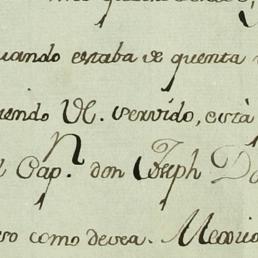 cuando estaba de quenta
endo Vl. servido, está
Cap.n don Joseph D
ro como devea. Mexico